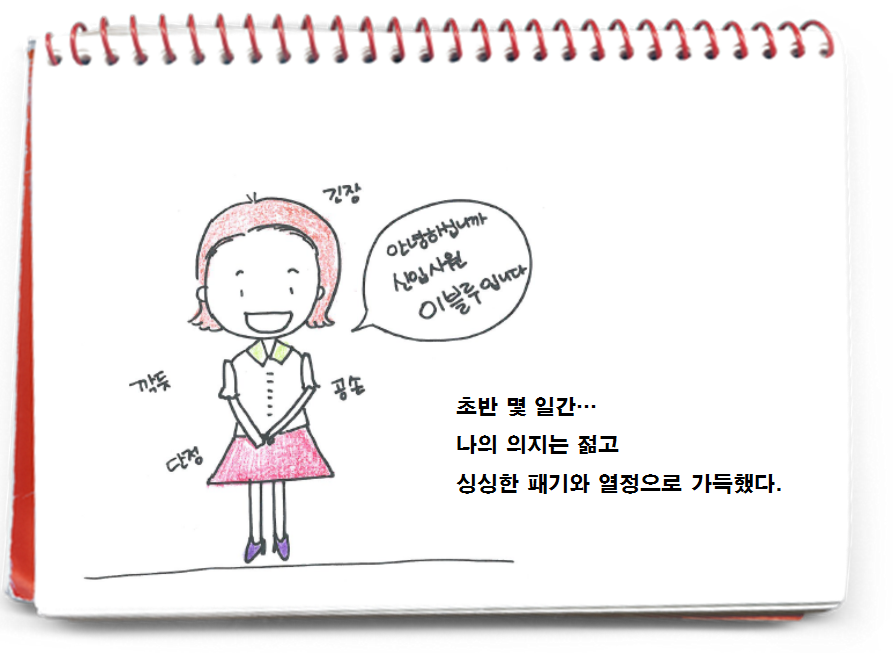 긴장
안녕하십니까
신입사원
이블루입니다
깍듯
공손
단정
초반 몇 일간…
나의 의지는 젊고
싱싱한 패기와 열정으로 가득했다.